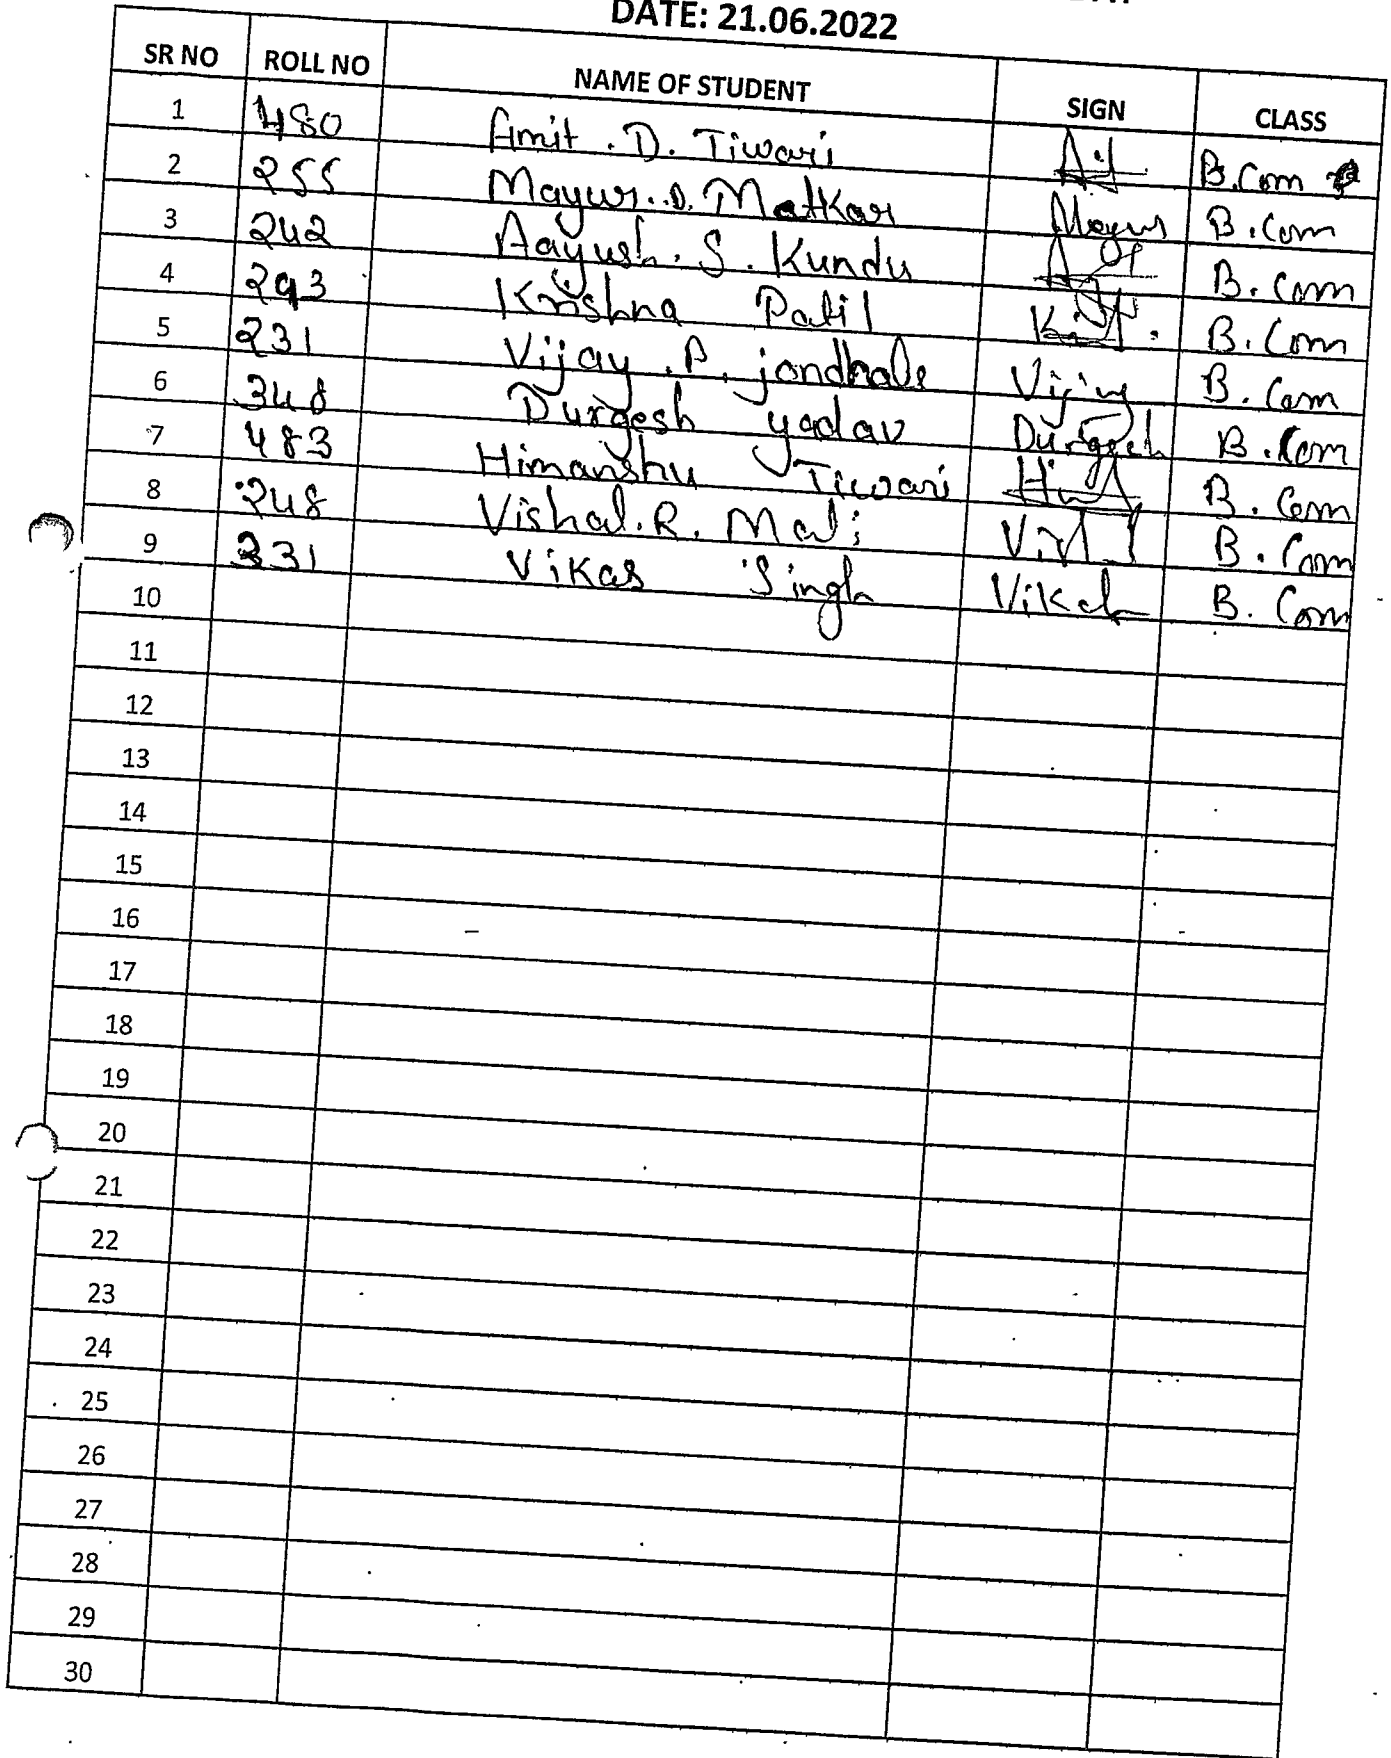 DATE: 21.06.2022
SR NO ROLL NO NAME OF STUDENT SIGN CLASS
1 480 Amit . D. Tiwari B.Com
2 255 Mayur . D. Matkar Mayur B.Com
3 242 Aayush . S. Kundu B.Com
4 293 Krishna Patil B.Com
5 231 Vijay . P. jondhale Vijay B.Com
6 348 Durgesh yadav Durgesh B.Com
7 483 Himanshu Tiwari B.Com
8 248 Vishal. R. Mali B.Com
9 331 Vikas Singh B.Com
10
11
12
13
14
15
16
17
18
19
20
21
22
23
24
25
26
27
28
29
30